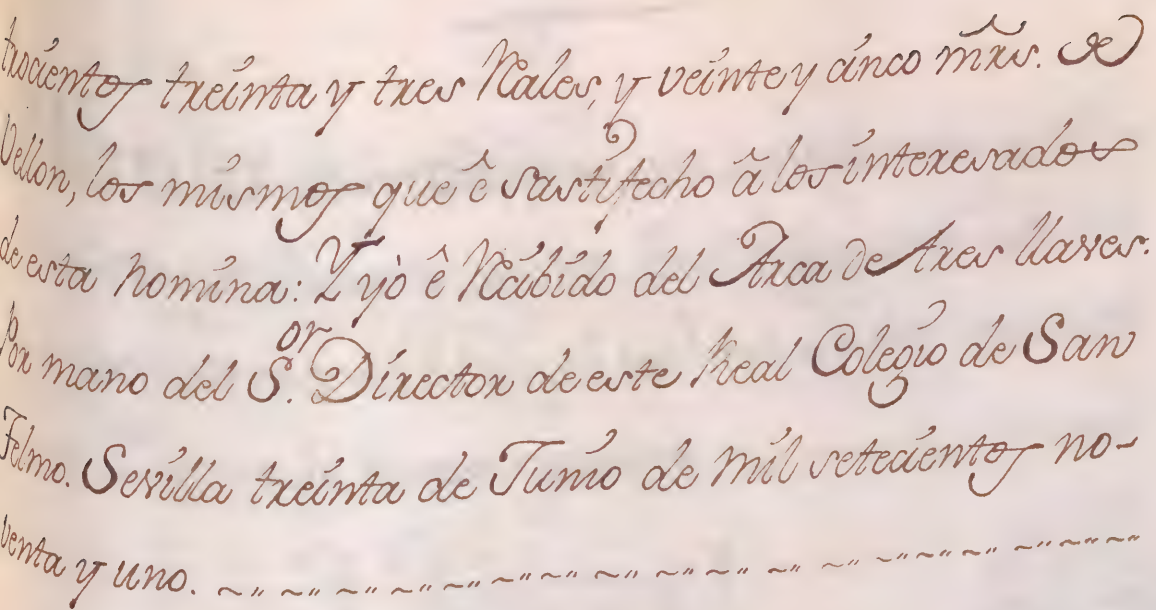 trocientos treinta y tres Rales, y veinte y cinco mr̃s. de
Vellon, los mismos que ê sastifecho â los interesados
de esta Nomina: Y yò ê Recibido del Arca de tres llaves:
Por mano del S.or Director de este Real Colegio de San
Telmo. Sevilla treinta de Junio de mil setecientos no-
venta y uno. ~"~"~"~"~"~"~"~"~"~"~"~"~